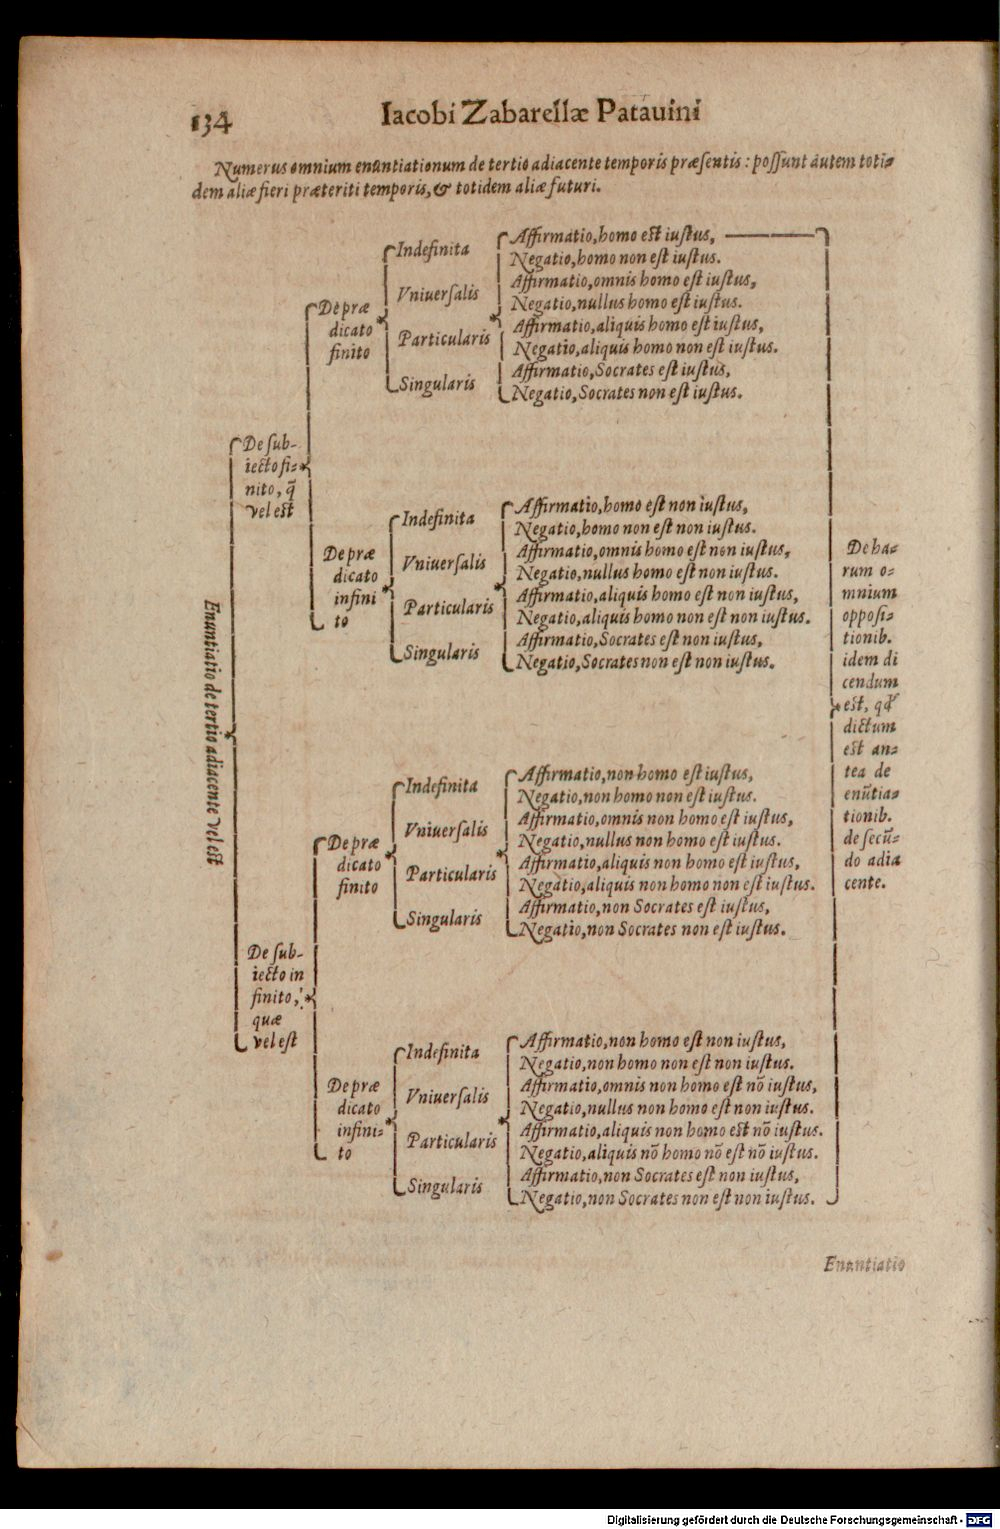 134
Iacobi Zabarellæ Patauini
Numerus omnium enuntiationum de tertio adiacente temporis præsentis: possunt autem toti=
dem aliæ fieri præteriti temporis, & totidem aliæ futuri.
Enuntiatio de tertio adiacente vel est
De sub-
iecto fi=
nito, q̃
vel est
De præ
dicato
finito
Indefinita
Vniuersalis
Particularis
Singularis
Affirmatio, homo est iustus,
Negatio, homo non est iustus.
Affirmatio, omnis homo est iustus,
Negatio, nullus homo est iustus.
Affirmatio, aliquis homo est iustus,
Negatio, aliquis homo non est iustus.
Affirmatio, Socrates est iustus,
Negatio, Socrates non est iustus.
De præ
dicato
infini
to
Indefinita
Vniuersalis
Particularis
Singularis
Affirmatio, homo est non iustus,
Negatio, homo non est non iustus.
Affirmatio, omnis homo est non iustus,
Negatio, nullus homo est non iustus.
Affirmatio, aliquis homo est non iustus,
Negatio, aliquis homo non est non iustus.
Affirmatio, Socrates est non iustus,
Negatio, Socrates non est non iustus.
De sub-
iecto in
finito,
quæ
vel est
De præ
dicato
finito
Indefinita
Vniuersalis
Particularis
Singularis
Affirmatio, non homo est iustus,
Negatio, non homo non est iustus.
Affirmatio, omnis non homo est iustus,
Negatio, nullus non homo est iustus.
Affirmatio, aliquis non homo est iustus,
Negatio, aliquis non homo non est iustus.
Affirmatio, non Socrates est iustus,
Negatio, non Socrates non est iustus.
De præ
dicato
infini=
to
Indefinita
Vniuersalis
Particularis
Singularis
Affirmatio, non homo est non iustus,
Negatio, non homo non est non iustus.
Affirmatio, omnis non homo est nō iustus,
Negatio, nullus non homo est non iustus.
Affirmatio, aliquis non homo est nō iustus.
Negatio, aliquis nō homo nō est nō iustus.
Affirmatio, non Socrates est non iustus,
Negatio, non Socrates non est non iustus.
De ha=
rum o=
mnium
opposi=
tionib.
idem di
cendum
est, qđ
dictum
est an=
tea de
enūtia=
tionib.
de secū=
do adia
cente.
Enuntiatio
Digitalisierung gefördert durch die Deutsche Forschungsgemeinschaft - DFG